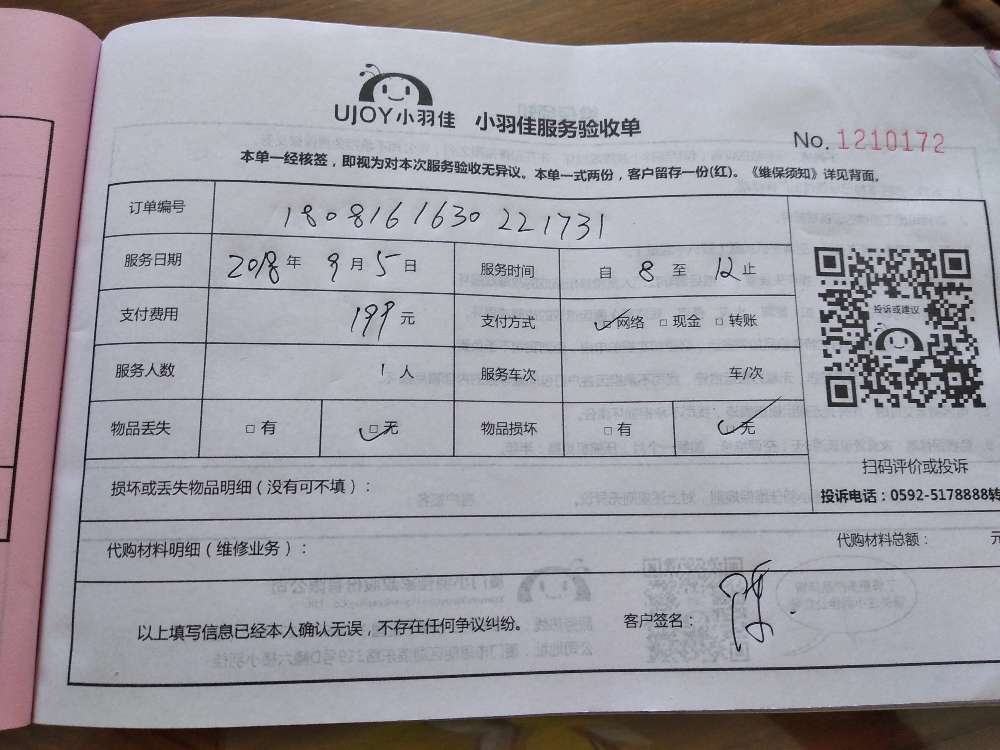 UJOY小羽佳 小羽佳服务验收单
No. 1210172
本单一经核签，即视为对本次服务验收无异议。本单一式两份，客户留存一份(红)。《维保须知》详见背面。
订单编号 180816163022 1731
服务日期 2018年 9月 5日 服务时间 自 8 至 12 止
支付费用 199元 支付方式 ☑网络 □现金 □转账
服务人数 1人 服务车次 车/次
物品丢失 □有 ☑无 物品损坏 □有 ☑无
投诉或建议
扫码评价或投诉
投诉电话：0592-5178888转
损坏或丢失物品明细（没有可不填）：
代购材料明细（维修业务）： 代购材料总额： 元
以上填写信息已经本人确认无误，不存在任何争议纠纷。 客户签名：